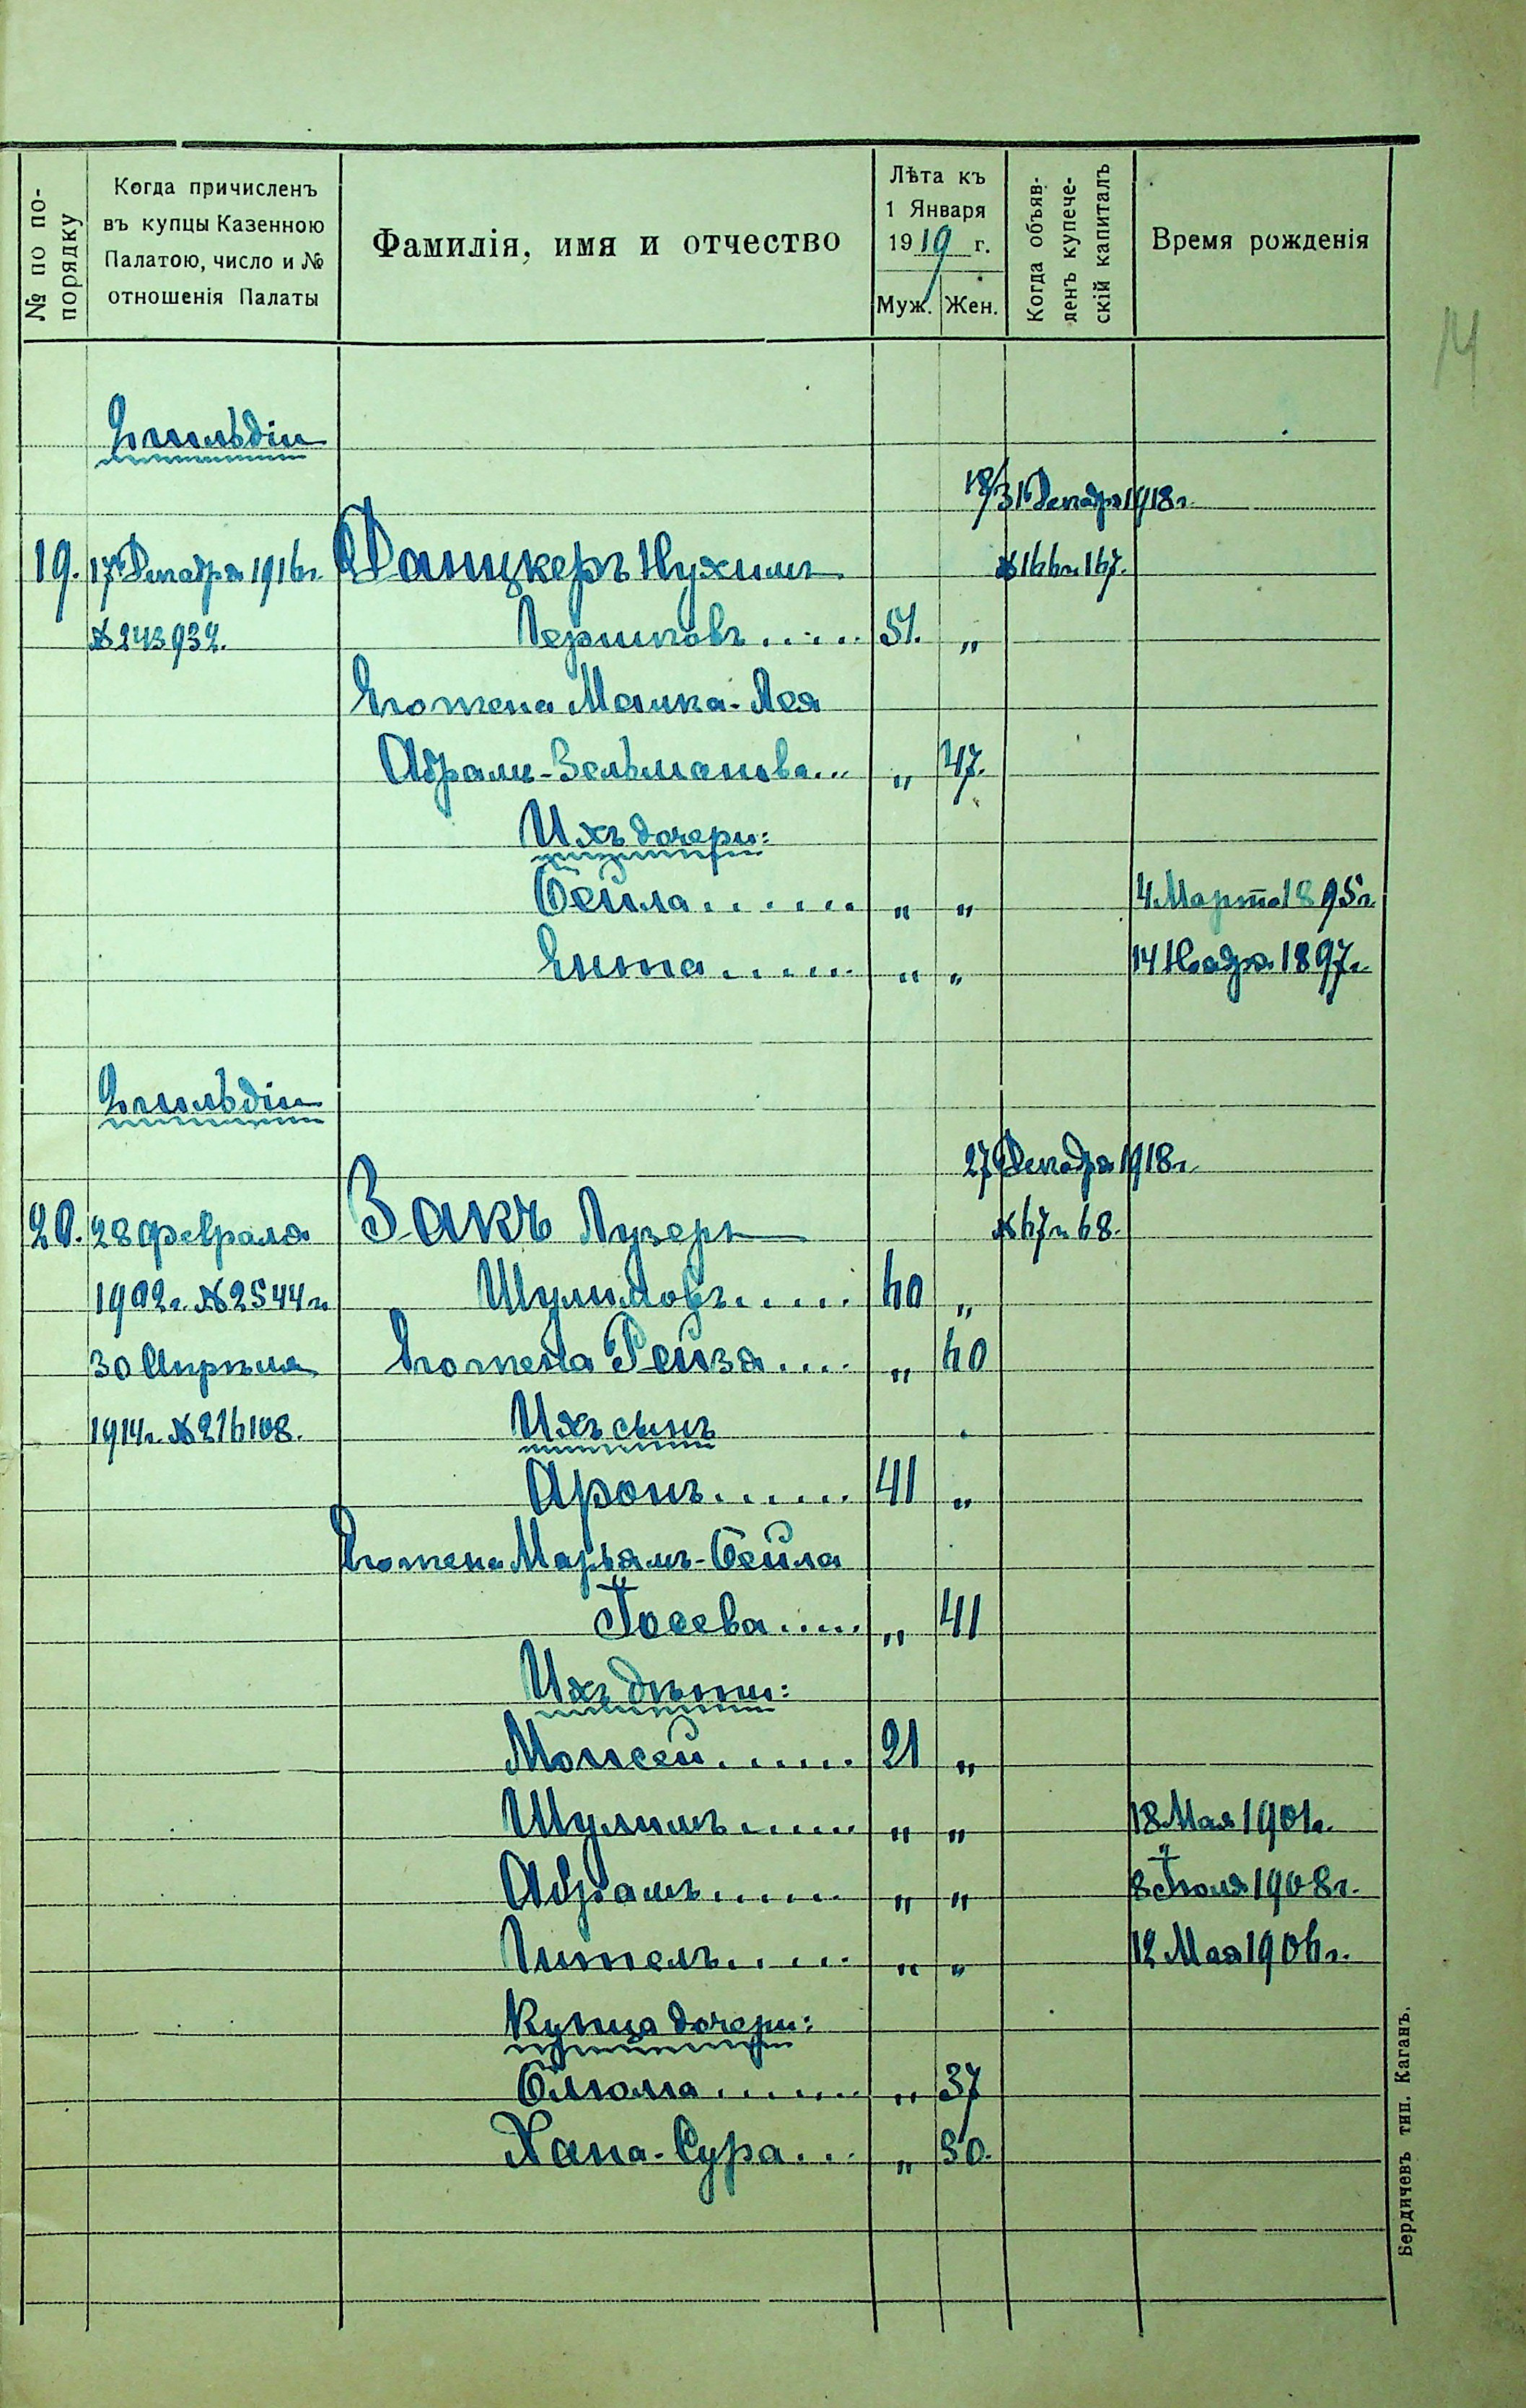 № по по-
порядку
Когда причисленъ
въ купцы Казенною
Палатою, число и №
отношенія Палаты
Фамилія, имя и отчество
Лѣта къ
1 Января
1919 г.
Муж. Жен.
Когда объяв-
ленъ купече-
скій капиталъ
Время рожденія
14
2 гильдіи
18/31 Декабря 1918 г.
19. 17 Декабря 1916 г. Данцкеръ Нухимъ № 166 и 167.
№ 243932. Гершковъ 51. „
Его жена Малка-Лея
Абрамъ-Зельманова „ 47.
Ихъ дочери:
Бейла „ „ 4 Марта 1895 г.
Ента „ „ 14 Ноября 1897 г.
2 гильдіи
27 Декабря 1918 г.
20. 28 Февраля Закъ Лузеръ № 67 и 68.
1902 г. № 2544 и Шулимовъ 60 „
30 Апрѣля Его жена Рейзя „ 60
1914 г. № 216108. Ихъ сынъ
Аронъ 41 „
Его жена Марьямъ-Бейла
Іосева „ 41
Ихъ дѣти:
Моисей 21 „
Шулимъ „ „ 18 Мая 1901 г.
Абрамъ „ „ 8 Іюля 1908 г.
Гителъ „ „ 12 Мая 1906 г.
Купца дочери:
Блюма „ 37
Хана-Сура „ 30.
Бердичевъ тип. Каганъ.